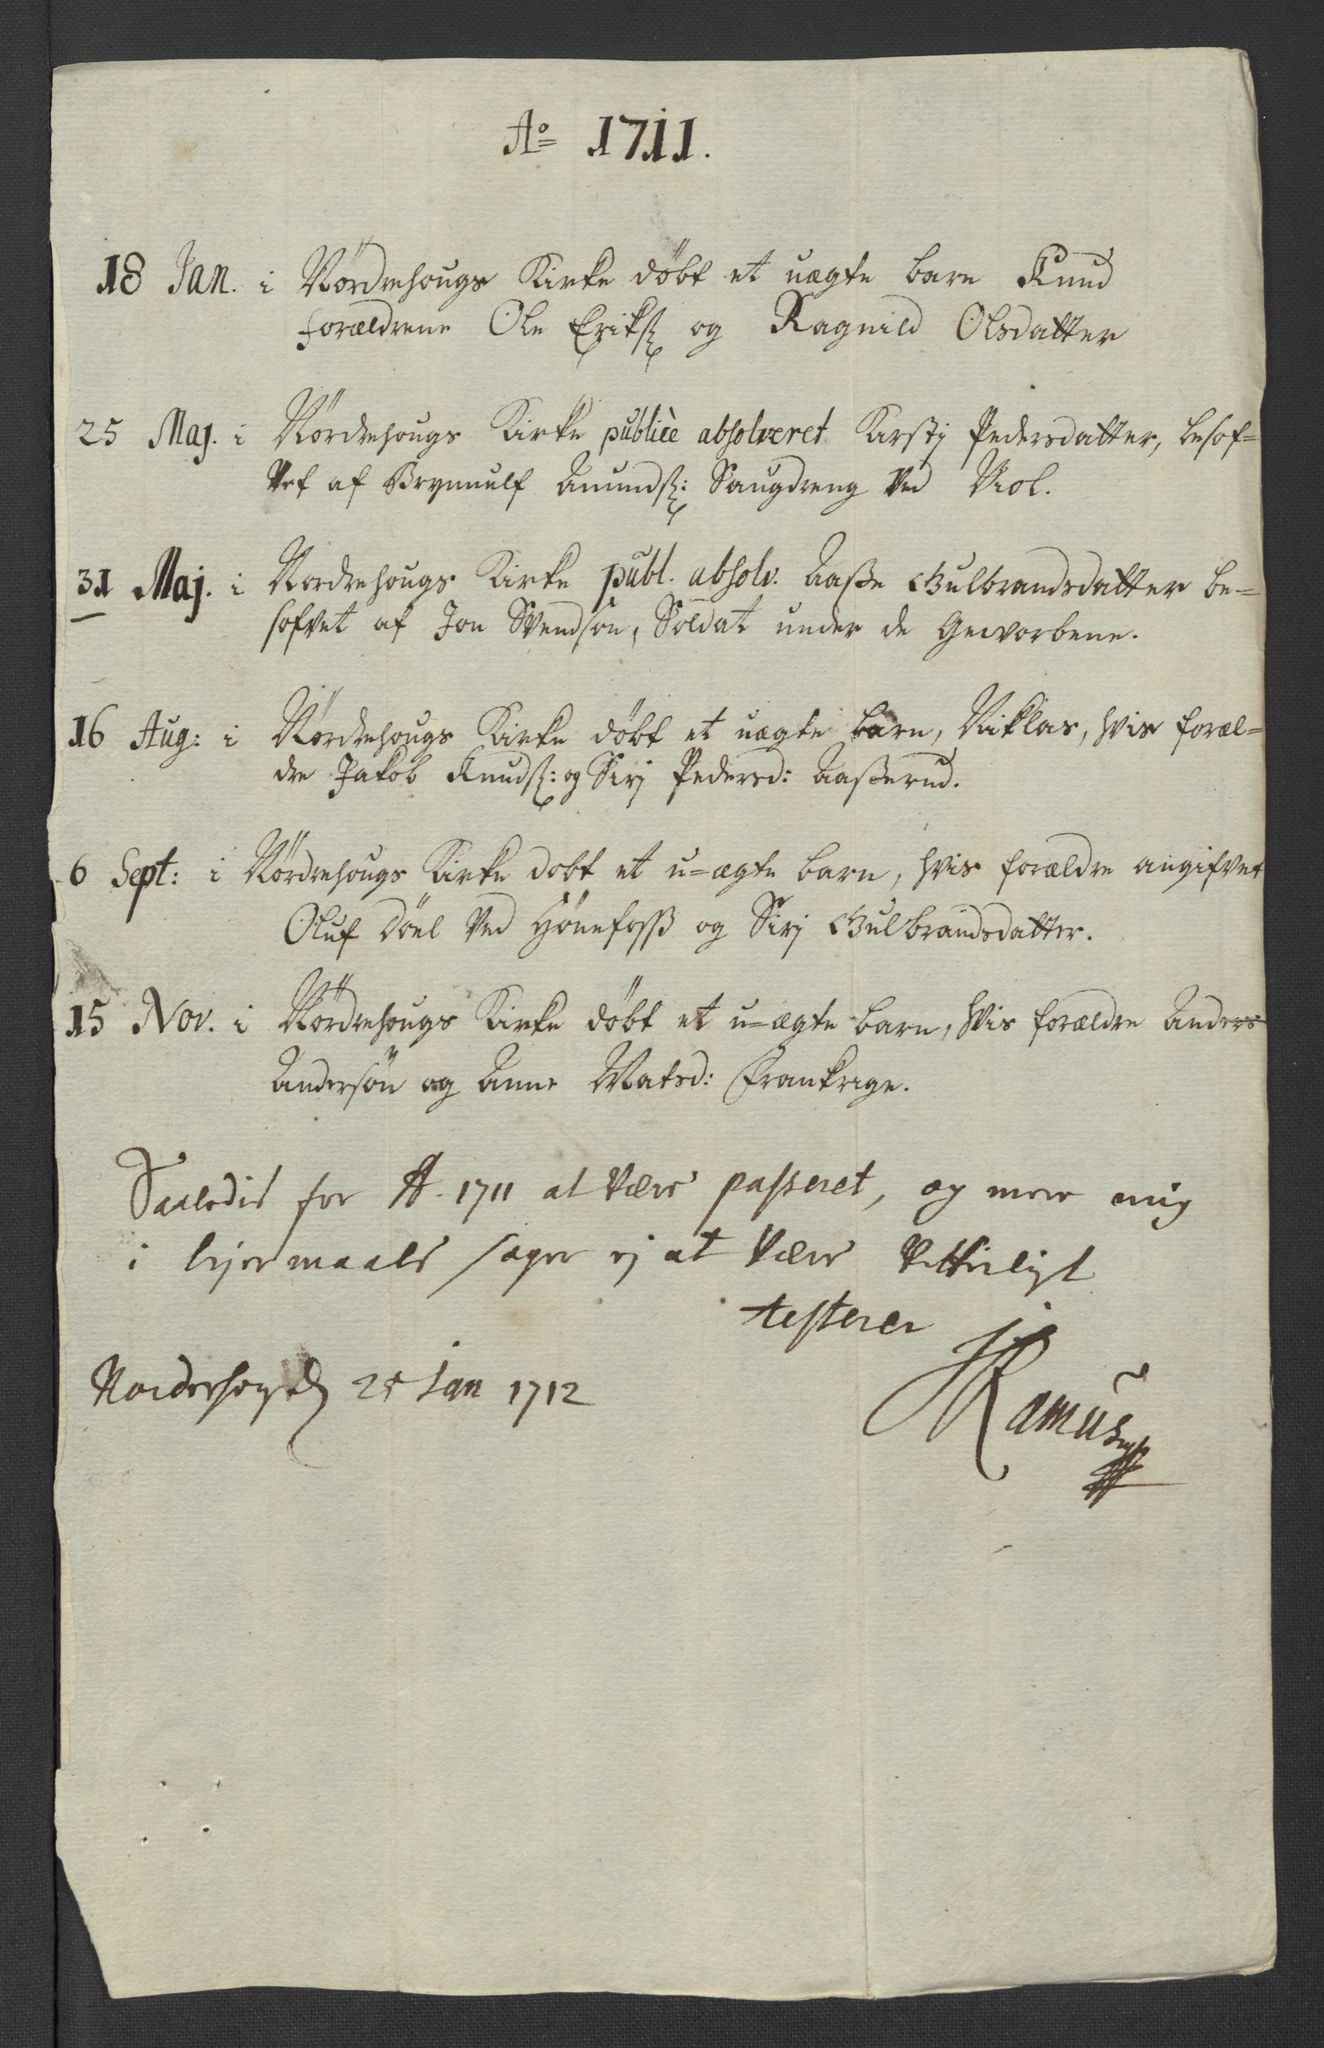 Ao 1711.
18 Jan. i Nördrehougs Kirke döbt et uægte barn Knud
forældrene Ole Erikß: og Ragnild Olsdatter
25 Maj. i Nördrehougs Kirke publicè absolveret Kirstj Pedersdatter, besof=
vet af Brynnulf Anundß: Saugdreng ved Viol.
31 Maj. i Nordrehougs Kirke publ. absolv. Aaße Gulbrandsdatter be=
sofvet af Jon Svendson, Soldat under de Geworbene.
16 Aug: i Nördrehougs Kirke döbt et uægte barn, Niklas, hvis foræl=
dre Jakob Knudß: og Sirj Pedersd: Aaßerud.
6 Sept: i Nördrehougs Kirke dobt et u=ægte barn, hvis forældre angifvet
Oluf Döel ved Hönefoss og Sirj Gulbrandsdatter.
15 Nov. i Nördrehougs Kirke döbt et u=ægte barn, hvis forældre Anders
Andersön og Anne Matsd: Frankrige.
Saaledis for A. 1711 at være passeret, og mere mig
i leyermaals sager ej at være vitterligt
testerer
Norderhoug d 24 Jan 1712
JRamus